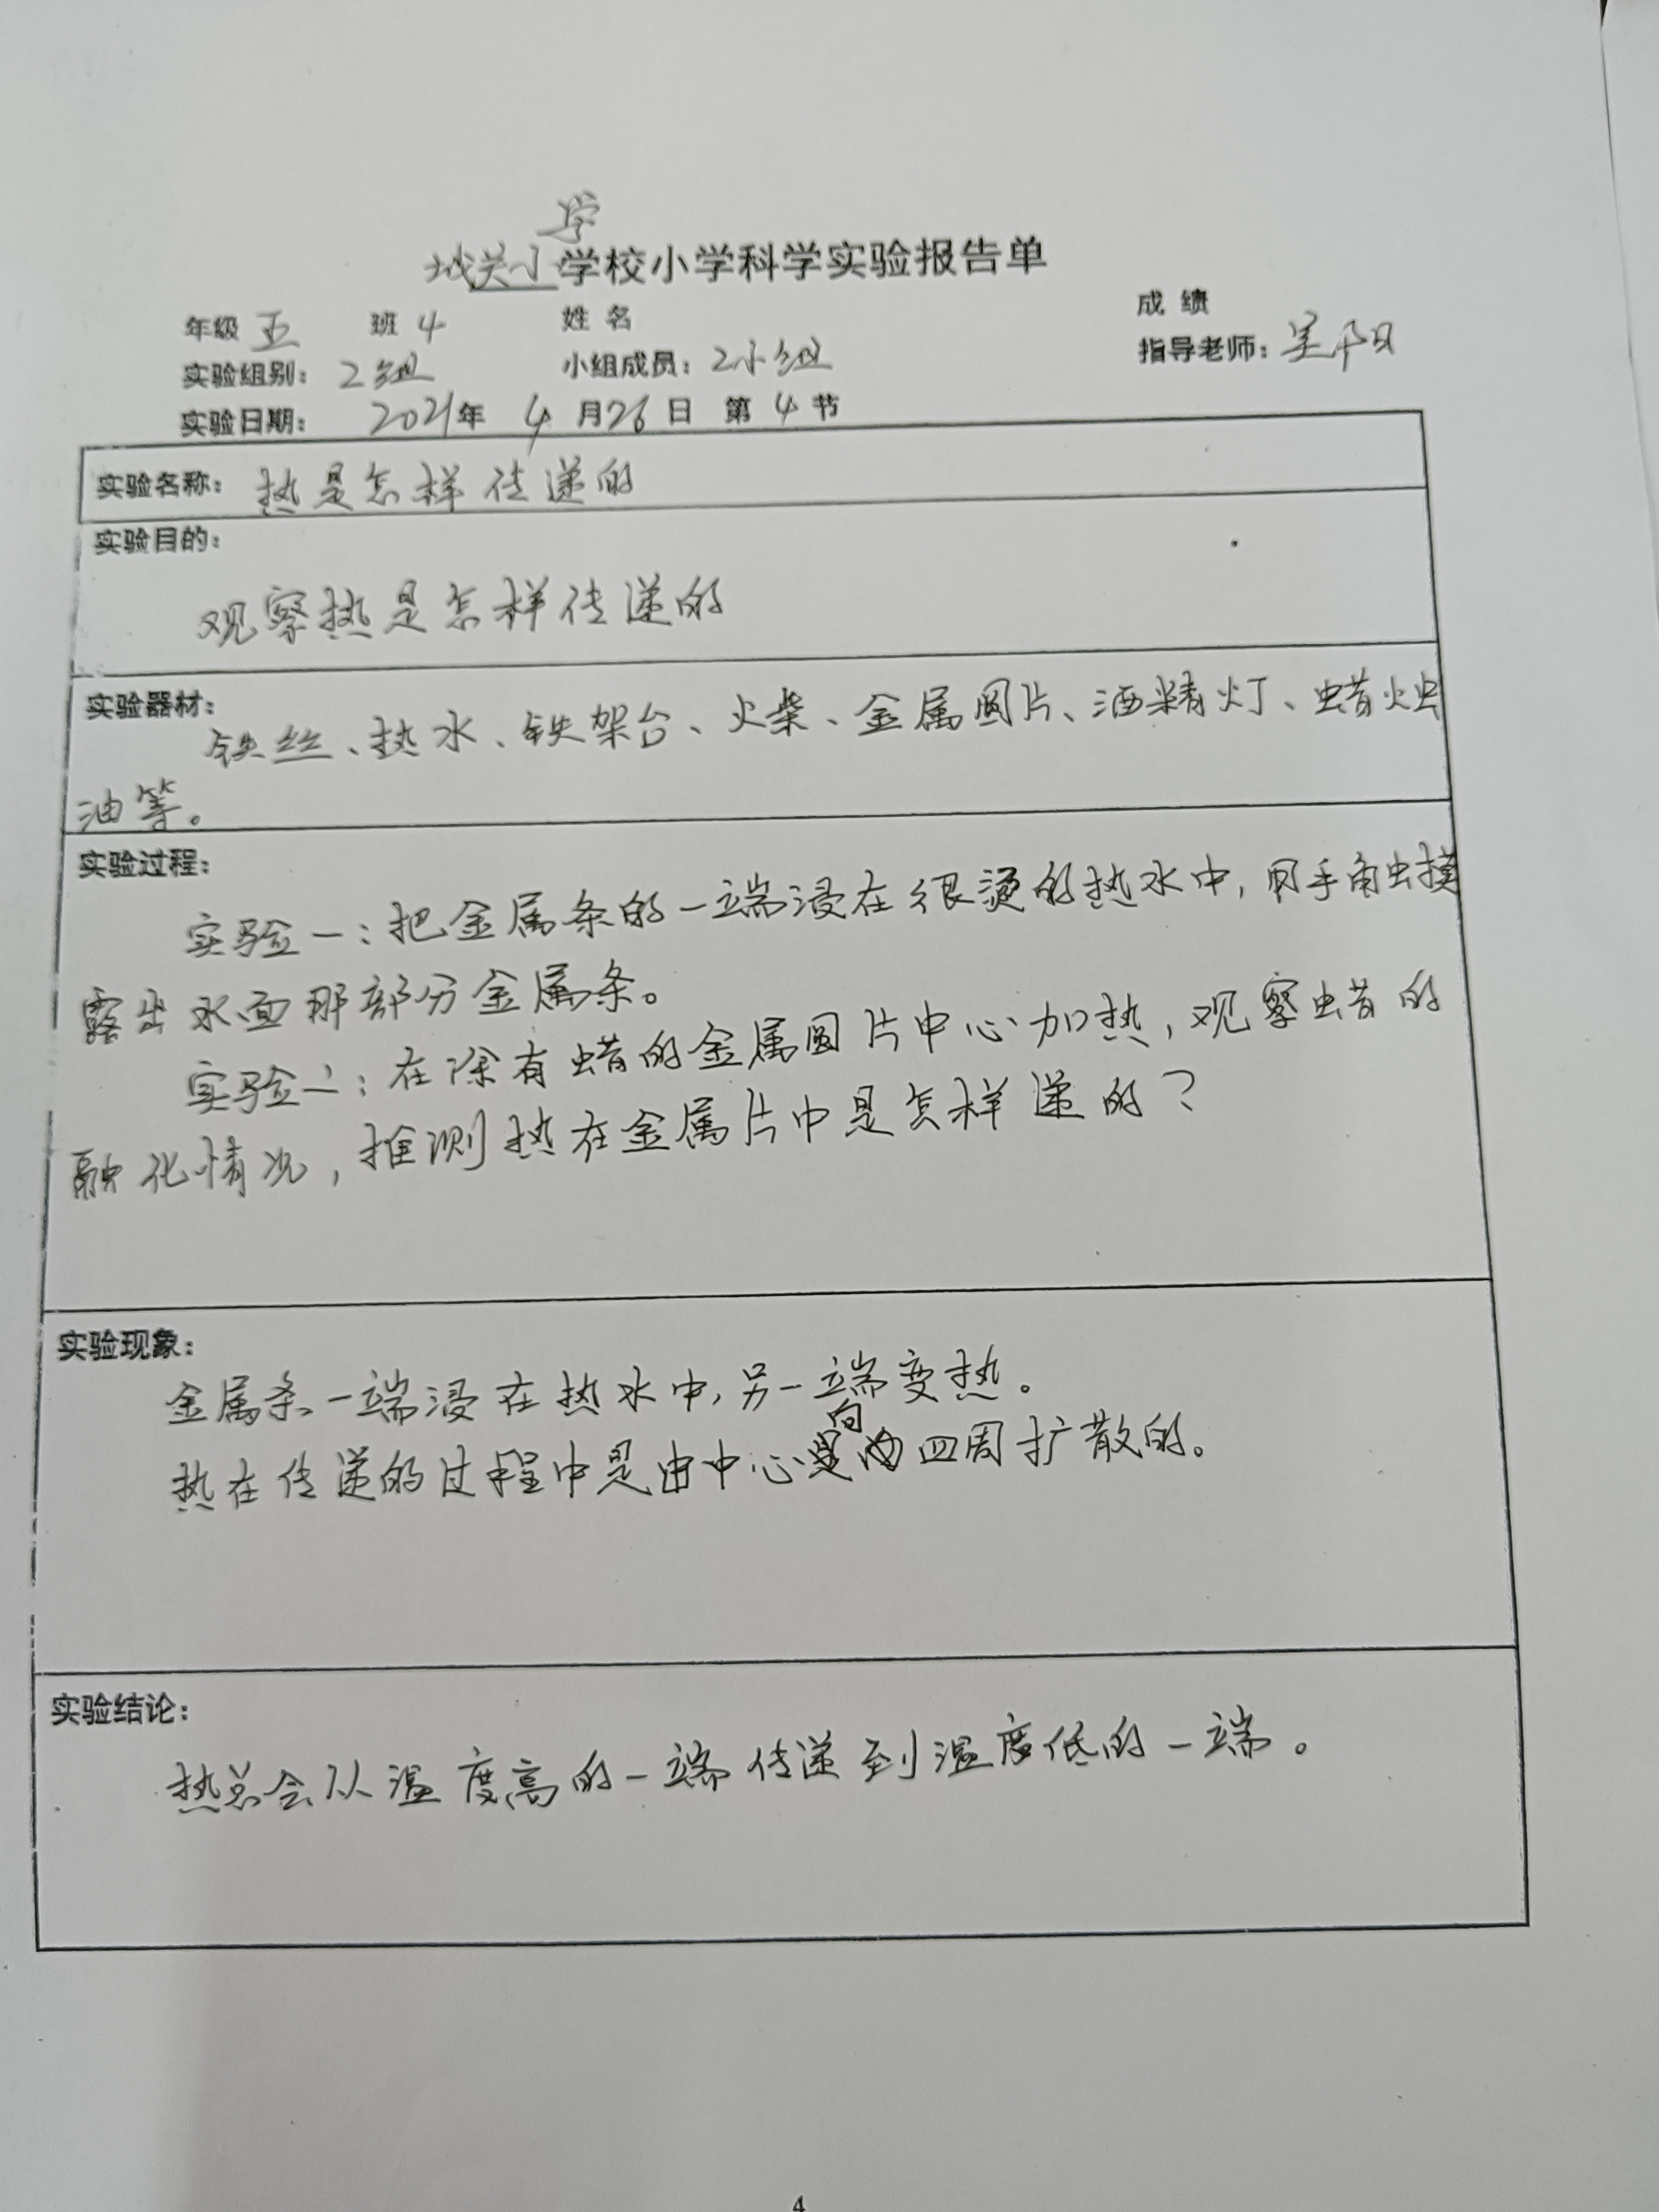 学
城关小学校小学科学实验报告单
年级 五 班 4 姓 名 成 绩
实验组别: 2组 小组成员: 2小组 指导老师: 吴
实验日期: 2021年 4月26日 第4节
实验名称: 热是怎样传递的
实验目的:
观察热是怎样传递的
实验器材:
铁丝、热水、铁架台、火柴、金属圆片、酒精灯、蜡烛
油等。
实验过程:
实验一:把金属条的一端浸在很烫的热水中,用手触摸
露出水面那部分金属条。
实验二:在涂有蜡的金属圆片中心加热,观察蜡的
融化情况,推测热在金属片中是怎样递的?
实验现象:
金属条一端浸在热水中,另一端变热。
热在传递的过程中是由中心向四周扩散的。
实验结论:
热总会从温度高的一端传递到温度低的一端。
4